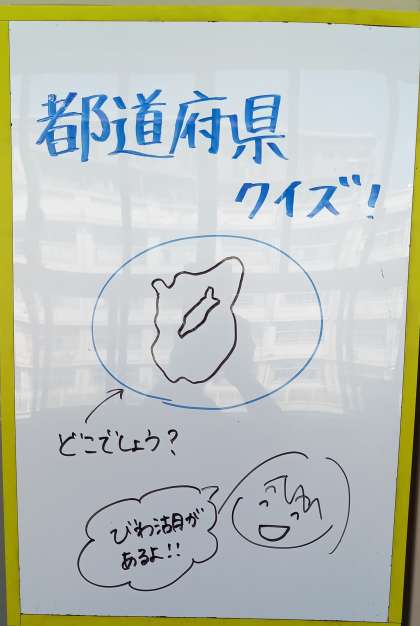 都道府県
クイズ!
どこでしょう?
びわ湖が
あるよ!!